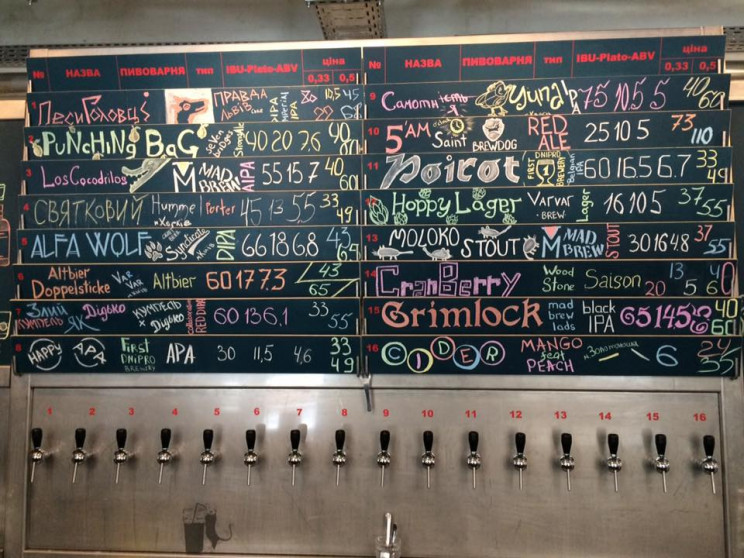 № НАЗВА ПИВОВАРНЯ ТИП IBU-Plato-ABV ціна 0,33 0,5
1 Песиголовці ПРАВДА IPA
2 PUNCHiNG BAG seven bridges 40 20 7.6 40
3 Los Cocodrilos MAD BREW AIPA 55 15.7 40 60
4 СВЯТКОВИЙ Hummel Porter 45 13 55 33 49
5 ALFA WOLF Syndicate DIPA 66 18 6,8 43 65
6 Altbier Doppelsticke Var Var Altbier 60 17 7.3 43 65
7 ЗЛИЙ ЯК Дідько КУМПЕЛЬ x Дідько RED DIPA 60 13 6,1 33 55
8 HAPPY APA First DNIPRO BREWERY APA 30 11,5 4,6 33 49
№ НАЗВА ПИВОВАРНЯ ТИП IBU-Plato-ABV ціна 0,33 0,5
9 Самотність IPA 75 10.5 5 40
10 5'AM Saint BREWDOG RED ALE 25 10 5 73 110
11 Poirot FIRST DNIPRO BREWERY 1 Belgian IPA 60 16.5 6.7 33 49
12 Hoppy Lager Varvar BREW Lager 16 10 5 37 55
13 MOLOKO STOUT MAD BREW STOUT 30 16 4,8 37 55
14 CranBerry Wood Stone Saison 20 13 5 40 60
15 Grimlock mad brew lads black IPA 65 14.5 40 60
16 CIDER MANGO feat PEACH 6 24 35
1 2 3 4 5 6 7 8 9 10 11 12 13 14 15 16